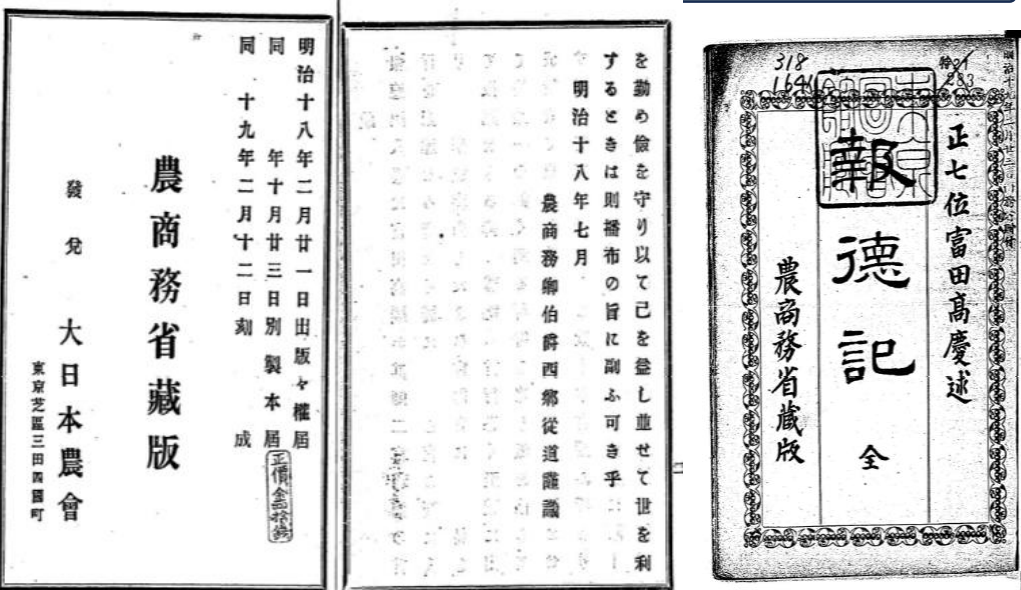 明治十八年二月廿一日出版々權屆
同 年十月廿三日別製本屆
同 十九年二月十二日刻成
農商務省藏版
發兌 大日本農會
東京芝區三田四國町
を勤め儉を守り以て己を益し並せて世を利
するときは則播布の旨に副ふ可き乎
明治十八年七月
農商務卿伯爵西郷從道謹識
318
1641
特21
283
正七位富田髙慶述
報德記 全
農商務省藏版